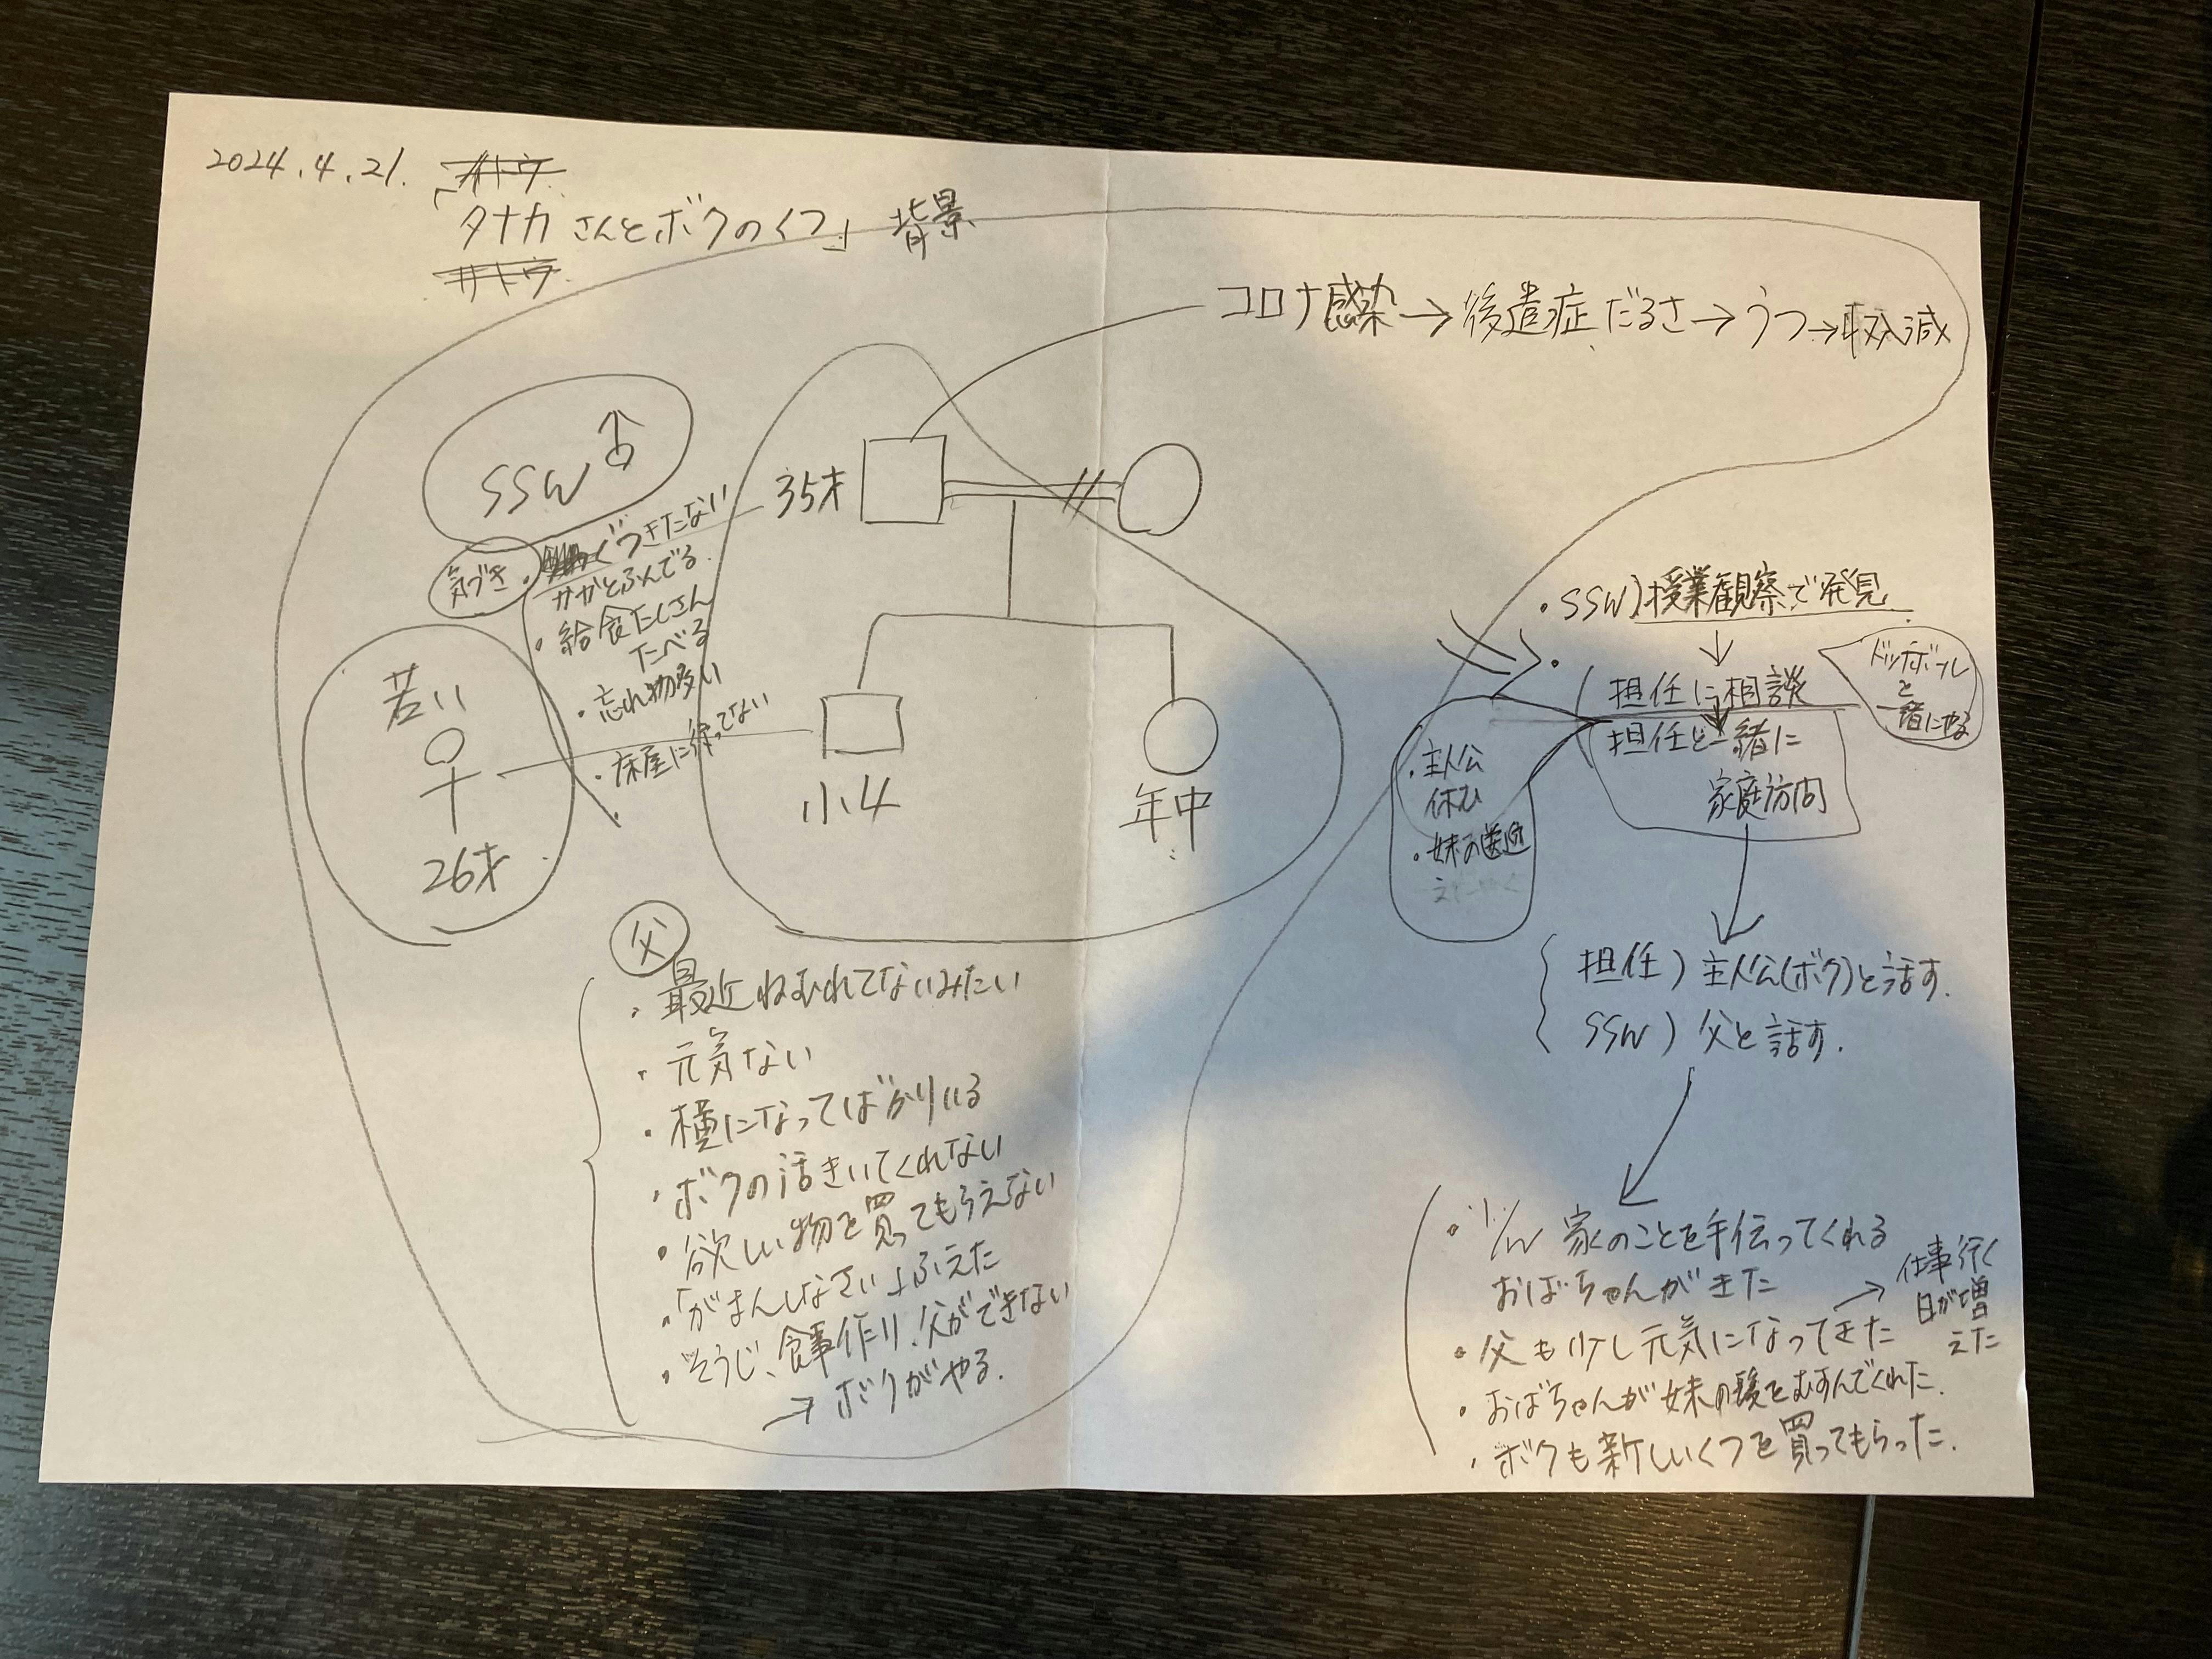 2024.4.21.
「タナカさんとボクのくつ」背景
サトウ
コロナ感染→後遺症だるさ→うつ→収入減
SSW
35才
気づき
・くつきたない
かかとふんでる.
・給食たくさん
たべる
・忘れ物多い
・床屋に行ってない
若い
26才
小4
年中
父
・最近ねむれてないみたい
・元気ない
・横になってばかりいる
・ボクの話きいてくれない
・欲しい物を買ってもらえない
・「がまんしなさい」ふえた
・そうじ、食事作り、父ができない
→ボクがやる.
・SSW)授業観察で発見
↓
・担任に相談
ドッヂボール
と
一緒にやる
担任と一緒に
家庭訪問
・主人公
休む
・妹の送迎
担任)主人公(ボク)と話す.
SSW)父と話す.
・1/W 家のことを手伝ってくれる
おばちゃんがきた
・父も少し元気になってきた
→仕事行く
日が増
えた
・おばちゃんが妹の髪をむすんでくれた.
・ボクも新しいくつを買ってもらった.